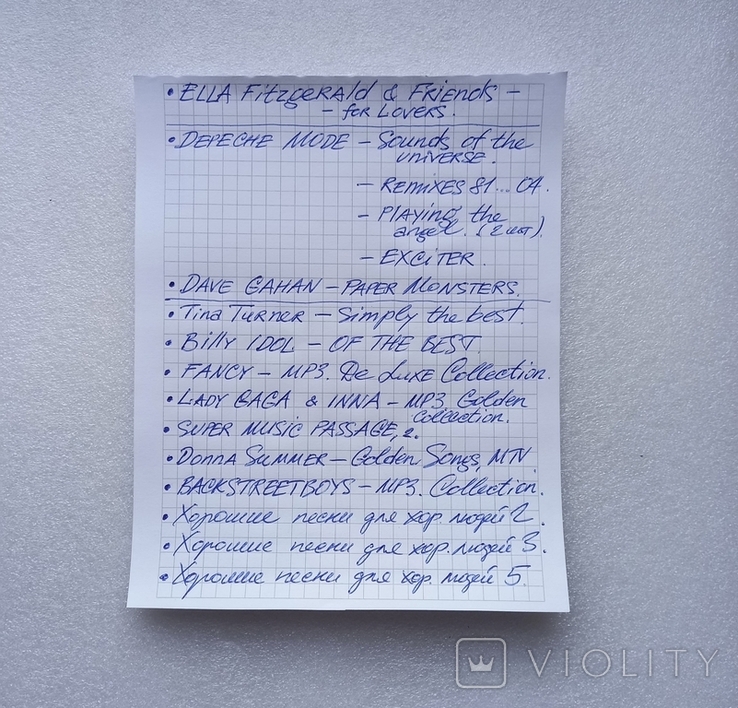 • ELLA FitzgeRAld & FRiends –
– foR LoveRs.
• DEPECHE MODE – Sounds of the
UNIVERSE.
– REMiXES 81...04.
– PlAying the
angel. (2 шт).
– EXCiTER.
• DAVE GAHAN – PAPER MONSTERS.
• Tina TuRNER – Simply the best.
• Billy IDOL – OF THE BEST
• FANCY – MP3. De LuxE Collection.
• LADY GAGA & INNA – MP3 Golden
Collection.
• SUPER MUSIC PASSAGE, 2.
• Donna SUMMER – Golden Songs, MTV
• BACKSTREETBOYS – MP3. Collection.
• Хорошие песни для хор. людей 2.
• Хорошие песни для хор. людей 3.
• Хорошие песни для хор. людей 5.
VIOLITY